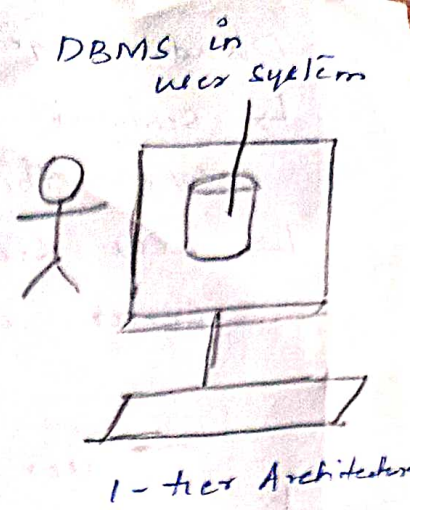 DBMS in
user system
1-tier Architectur